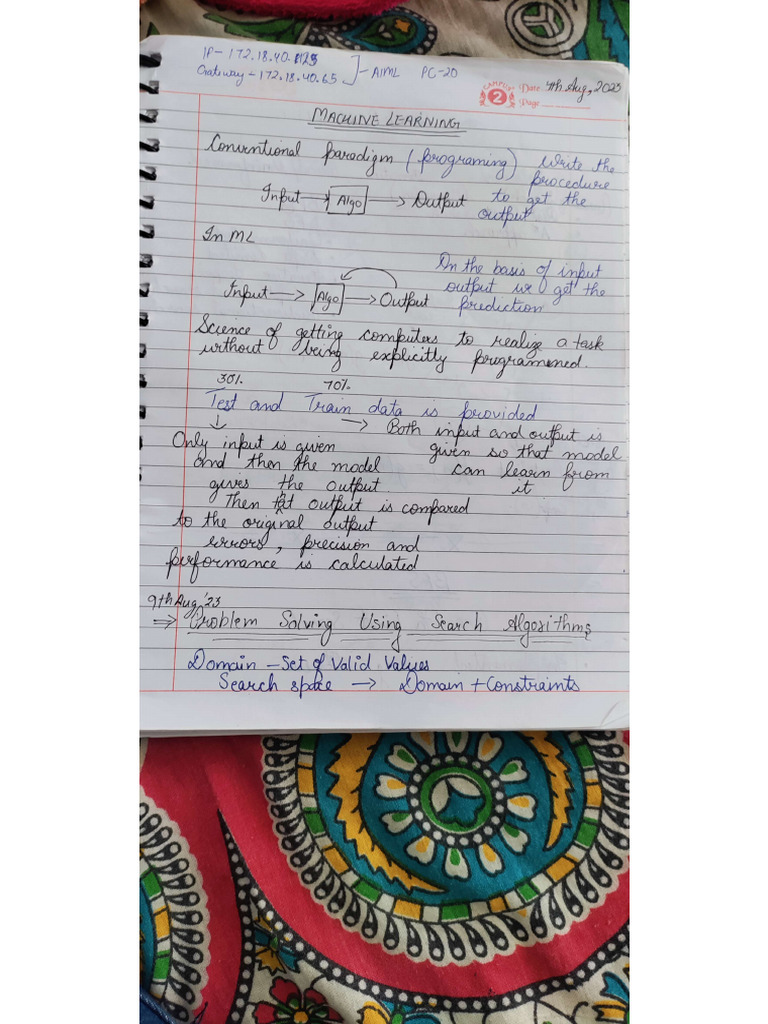 IP - 172.18.40.125
Gateway - 172.18.40.65 ]- AIML PC-20
CAMPUS 2 Date 7th Aug, 2023
Page
MACHINE LEARNING
Conventional Paradigm (programing) Write the
procedure
Input → Algo → Output to get the
output
In ML
On the basis of input
output we get the
Input → Algo → Output prediction
Science of getting computers to realize a task
without being explicitly programmened.
30% 70%
Test and Train data is provided
↓ → Both input and output is
Only input is given given so that model
and then the model can learn from
gives the output it
Then output is compared
to the original output
errors, precision and
performance is calculated
9th Aug,'23
⇒ Problem Solving Using Search Algorithms
Domain - Set of Valid Values
Search space → Domain + Constraints